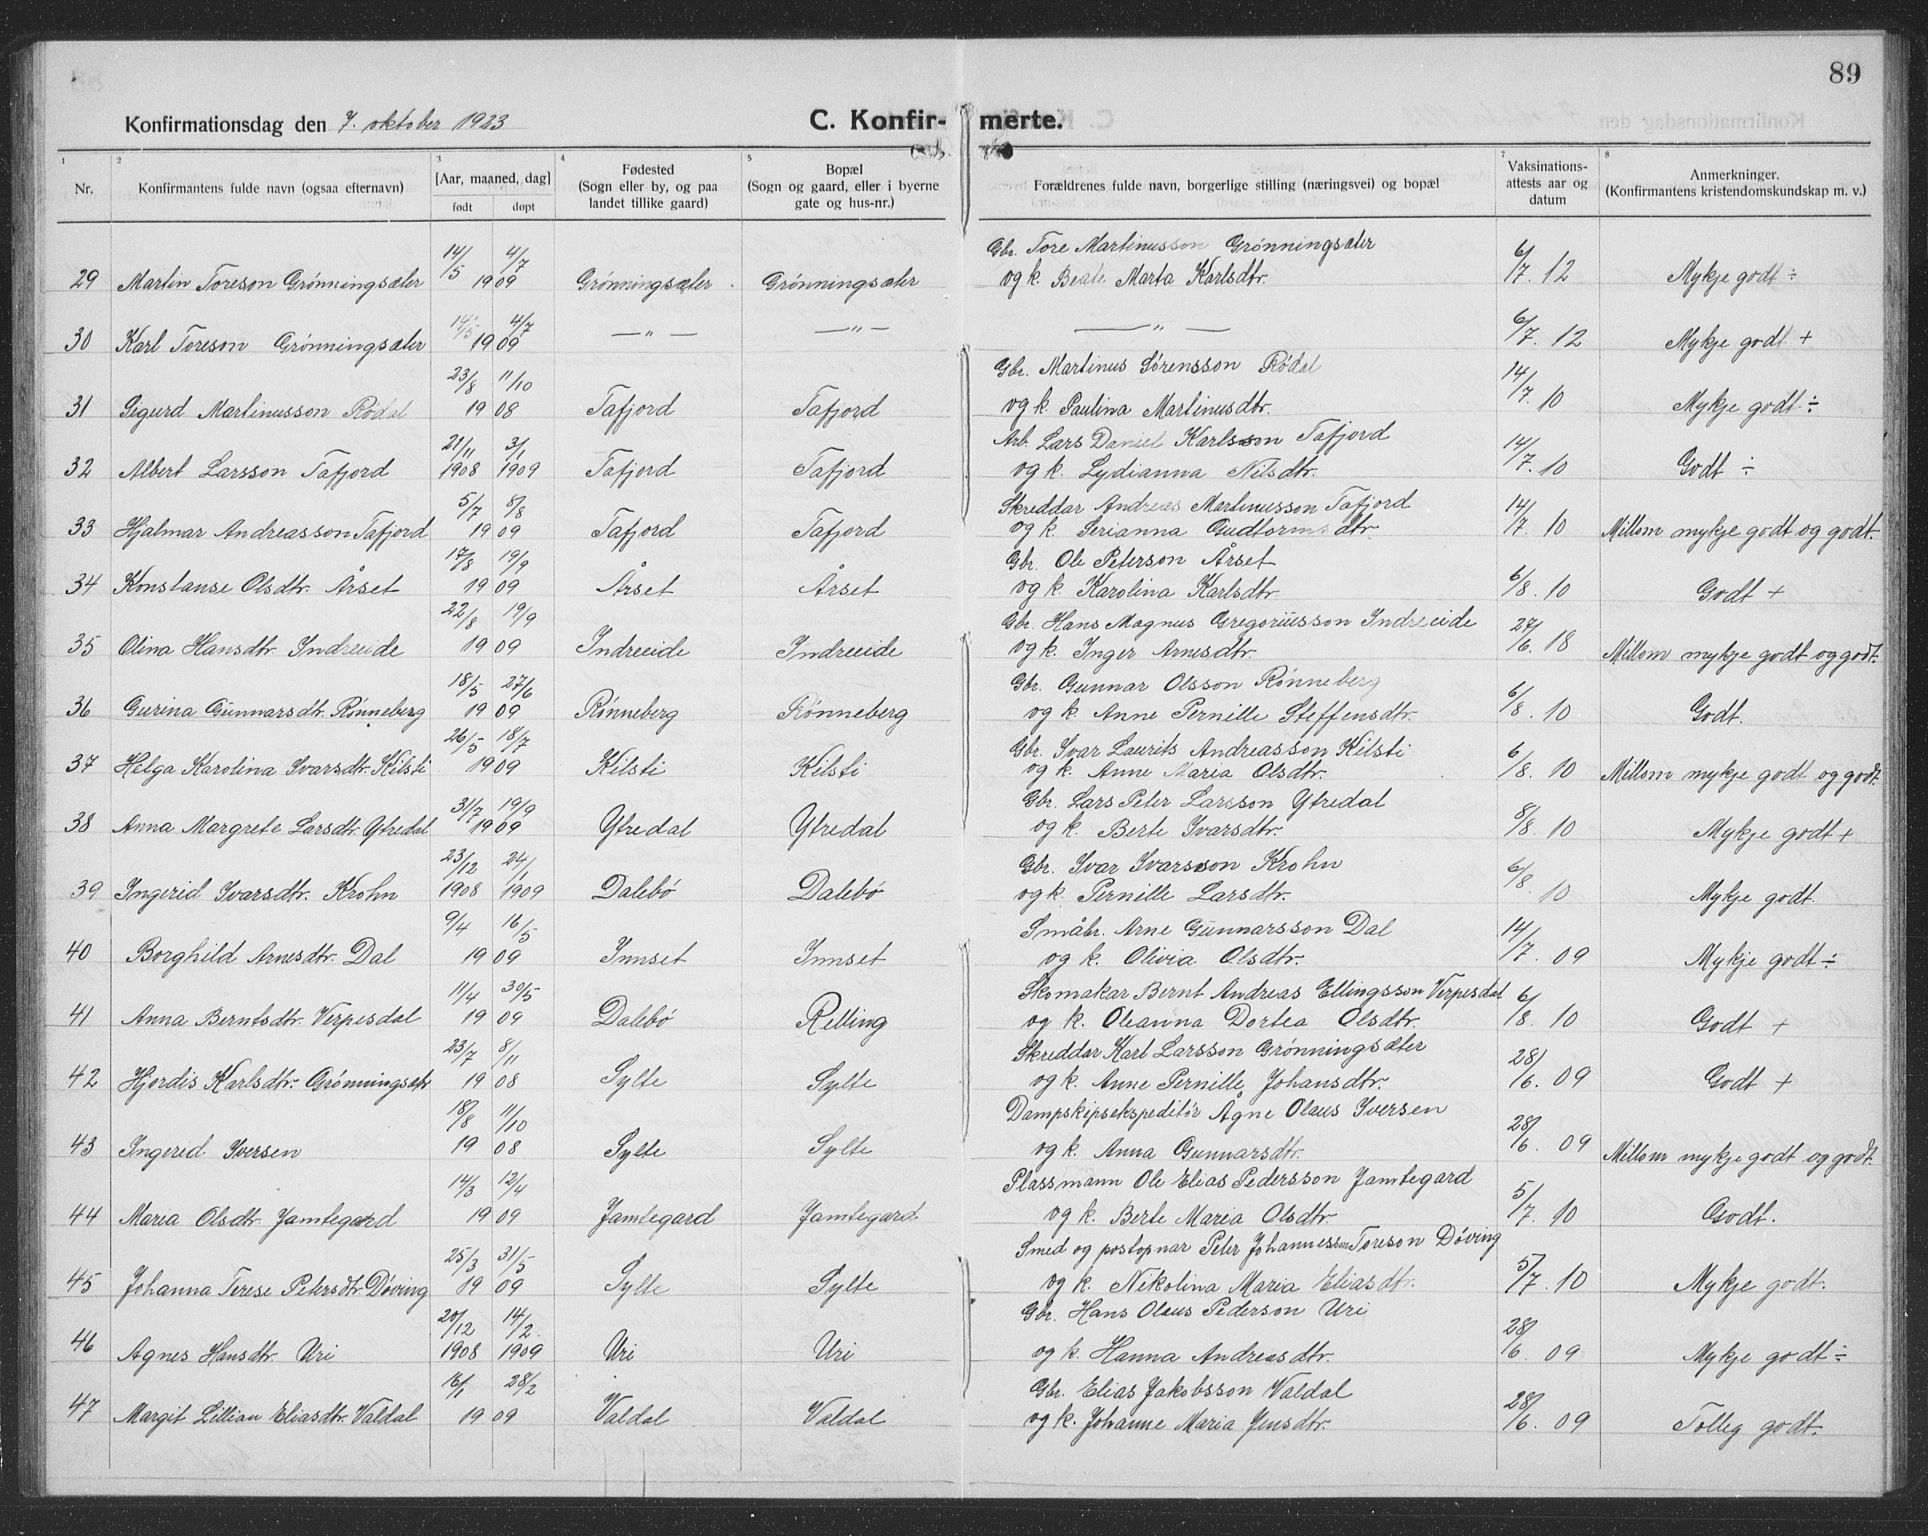 89
Konfirmationsdag den 7. oktober 1923 C. Konfir- merte.
1 2 3 4 5 7 8
Nr. Konfirmantens fulde navn (ogsaa efternavn) [Aar, maaned, dag] født døpt Fødested (Sogn eller by, og paa landet tillike gaard) Bopæl (Sogn og gaard, eller i byerne gate og hus-nr.) Forældrenes fulde navn, borgerlige stilling (næringsvei) og bopæl Vaksinations-attests aar og datum Anmerkninger. (Konfirmantens kristendomskundskap m. v.)
14/5 4/7 Gbr. Tore Martinusson Grønningsæter
29 Martin Toreson Grønningsæter 1909 Grønningsæter Grønningsæter og k. Beate Marta Karlsdtr. 6/7. 12 Mykje godt ÷
14/5 4/7
30 Karl Toreson Grønningsæter 1909 —"— —"— —"— 6/7. 12 Mykje godt +
23/8 11/10 Gbr. Martinus Sørensson Rødal
31 Sigurd Martinusson Rødal 1908 Tafjord Tafjord og k. Paulina Martinusdtr. 14/7. 10 Mykje godt ÷
21/11 3/1 Arb. Lars Daniel Karlsson Tafjord
32 Albert Larsson Tafjord 1908 1909 Tafjord Tafjord og k. Lydianna Nilsdtr. 14/7. 10 Godt ÷
5/7 8/8 Skreddar Andreas Martinusson Tafjord
33 Hjalmar Andreasson Tafjord 1909 Tafjord Tafjord og k. Serianna Gudtormsdtr. 14/7. 10 Millom mykje godt og godt.
17/8 19/9 Gbr. Ole Peterson Årset
34 Konstanse Olsdtr. Årset 1909 Årset Årset og k. Karolina Karlsdtr. 6/8. 10 Godt +
22/8 19/9 Gbr. Hans Magnus Gregoriusson Indreeide
35 Olina Hansdtr. Indreeide 1909 Indreeide Indreeide og k. Inger Arnesdtr. 27/6. 18 Millom mykje godt og godt.
18/5 27/6 Gbr. Gunnar Olsson Rønneberg
36 Gurina Gunnarsdtr. Rønneberg 1909 Rønneberg Rønneberg og k. Anne Pernille Steffensdtr. 6/8. 10 Godt.
26/5 18/7 Gbr. Ivar Laurits Andreasson Kilsti
37 Helga Karolina Ivarsdtr. Kilsti 1909 Kilsti Kilsti og k. Anne Maria Olsdtr. 6/8. 10 Millom mykje godt og godt.
31/7 19/9 Gbr. Lars Peter Larsson Ytredal
38 Anna Margrete Larsdtr. Ytredal 1909 Ytredal Ytredal og k. Berte Ivarsdtr. 8/8. 10 Mykje godt +
23/12 24/1 Gbr. Ivar Ivarsson Krohn
39 Ingerid Ivarsdtr. Krohn 1908 1909 Dalebø Dalebø og k. Pernille Larsdtr. 6/8. 10 Mykje godt.
9/4 16/5 Småbr. Arne Gunnarsson Dal
40 Borghild Arnesdtr. Dal 1909 Innset Innset og k. Olivia Olsdtr. 14/7. 09 Mykje godt ÷
11/4 30/5 Skomakar Bernt Andreas Ellingsson Verpesdal
41 Anna Berntsdtr. Verpesdal 1909 Dalebø Relling og k. Oleanna Dortea Olsdtr. 6/8. 10 Godt +
23/7 8/11 Skreddar Karl Larsson Grønningsæter
42 Hjørdis Karlsdtr. Grønningsætr 1908 Sylte Sylte og k. Anne Pernille Johansdtr. 28/6. 09 Godt +
18/8 11/10 Dampskipsekspeditør Ågne Olaus Iversen
43 Ingerid Iversen 1908 Sylte Sylte og k. Anna Gunnarsdtr. 28/6. 09 Millom mykje godt og godt.
14/3 12/4 Plassmann Ole Elias Pedersson Jamtegard
44 Maria Olsdtr. Jamtegard 1909 Jamtegard Jamtegard og k. Berte Maria Olsdtr. 5/7. 10 Godt.
25/3 31/5 Smed og postopnar Peter Johannesson Toreson Døving
45 Johanna Terese Petersdtr. Døving 1909 Sylte Sylte og k. Nikolina Maria Eliasdtr. 5/7. 10 Mykje godt.
20/12 14/2 Gbr. Hans Olaus Pederson Uri
46 Agnes Hansdtr. Uri 1908 1909 Uri Uri og k. Hanna Andreasdtr. 28/6. 09 Mykje godt ÷
16/1 28/2 Gbr. Elias Jakobsson Valdal
47 Margit Lillian Eliasdtr. Valdal 1909 Valdal Valdal og k. Johanne Maria Jensdtr. 28/6. 09 Tolleg godt.